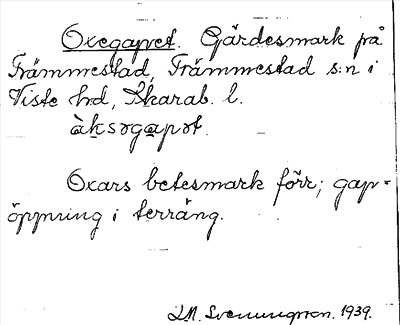 Oxegapet. Gärdesmark på
Främmestad, Främmestad s:n i
Viste hd, Skarab. l.
àksəgapət.
Oxars betesmark förr; gap-
öppning i terräng.
J.M. Svenungsson. 1939.